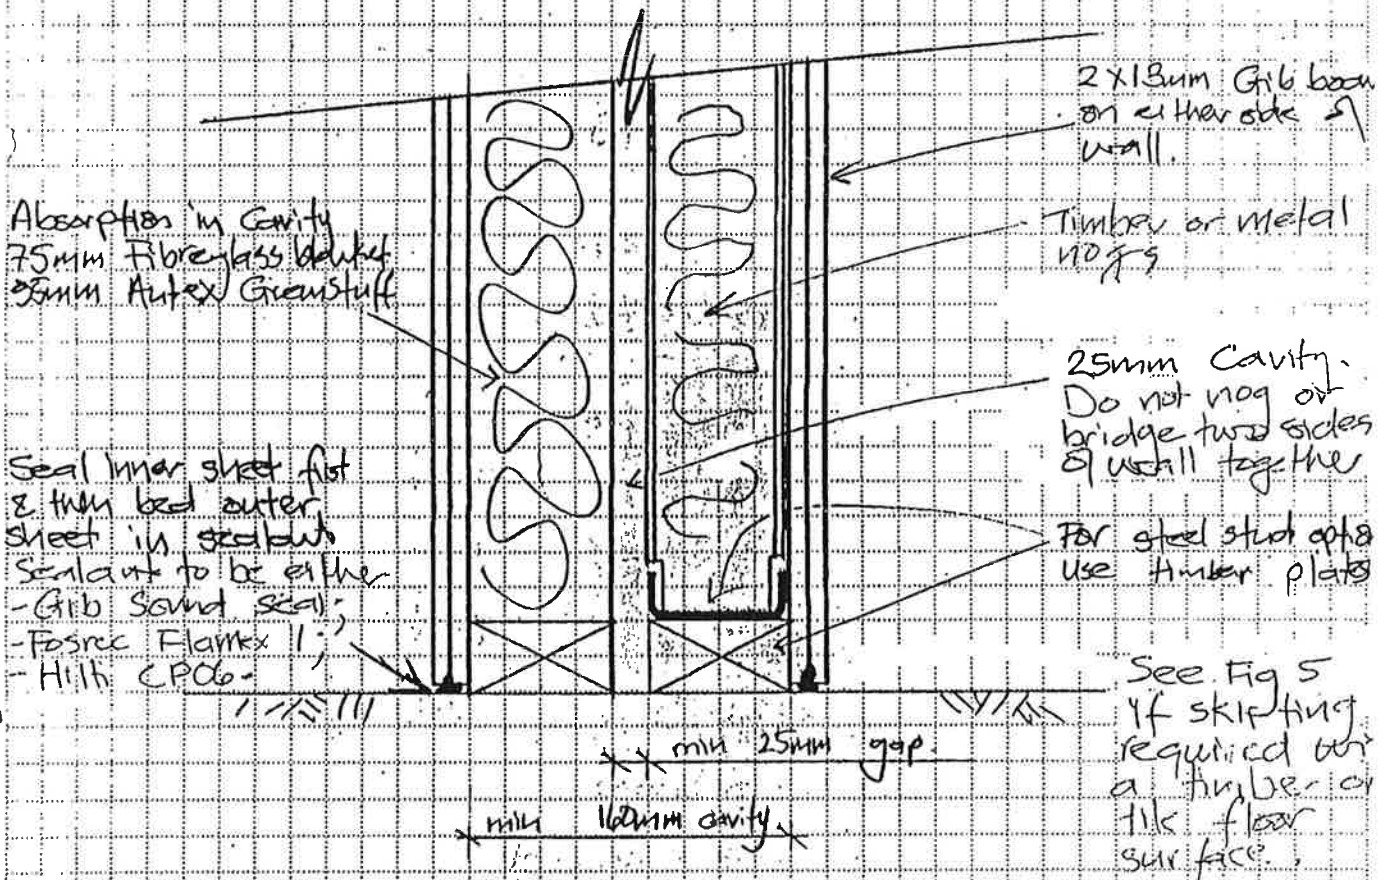 2 X 13mm Gib
on either side of
wall.
Timber or metal
nogs
Absorption in Cavity
75mm Fibreglass blanket
Autex Greenstuff
25mm Cavity.
Do not nog or
bridge two sides
of wall together
Seal inner sheet first
& then bed outer
sheet in sealant
Sealant to be either
- Gib Sound seal;
- Fosroc Flamex 11;
- Hilti CP06-
For steel stud
use timber plates
See Fig 5
if skirting
required
a timber or
tile floor
surface.
min 25mm gap.
min 160mm cavity.